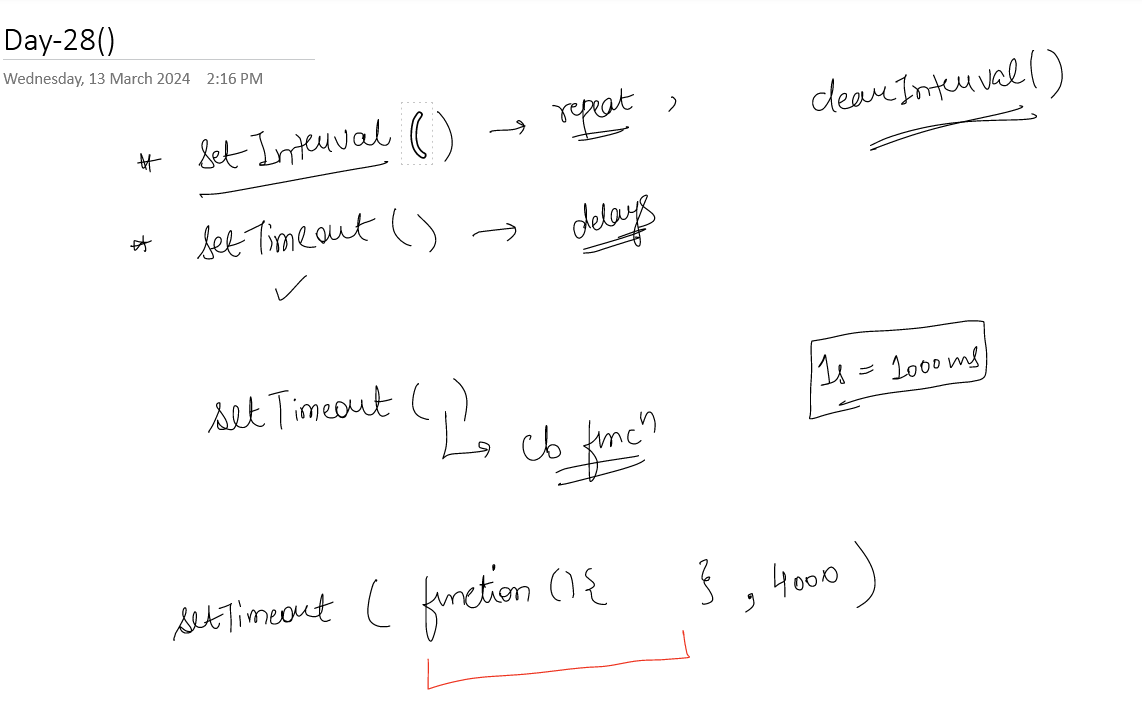 Day-28()
Wednesday, 13 March 2024 2:16 PM
* set Interval () → repeat , clearInterval()
* setTimeout () → delays
✓
1s = 1000 ms
setTimeout ( , )
↳ cb funcⁿ
setTimeout ( function (){ } , 4000 )